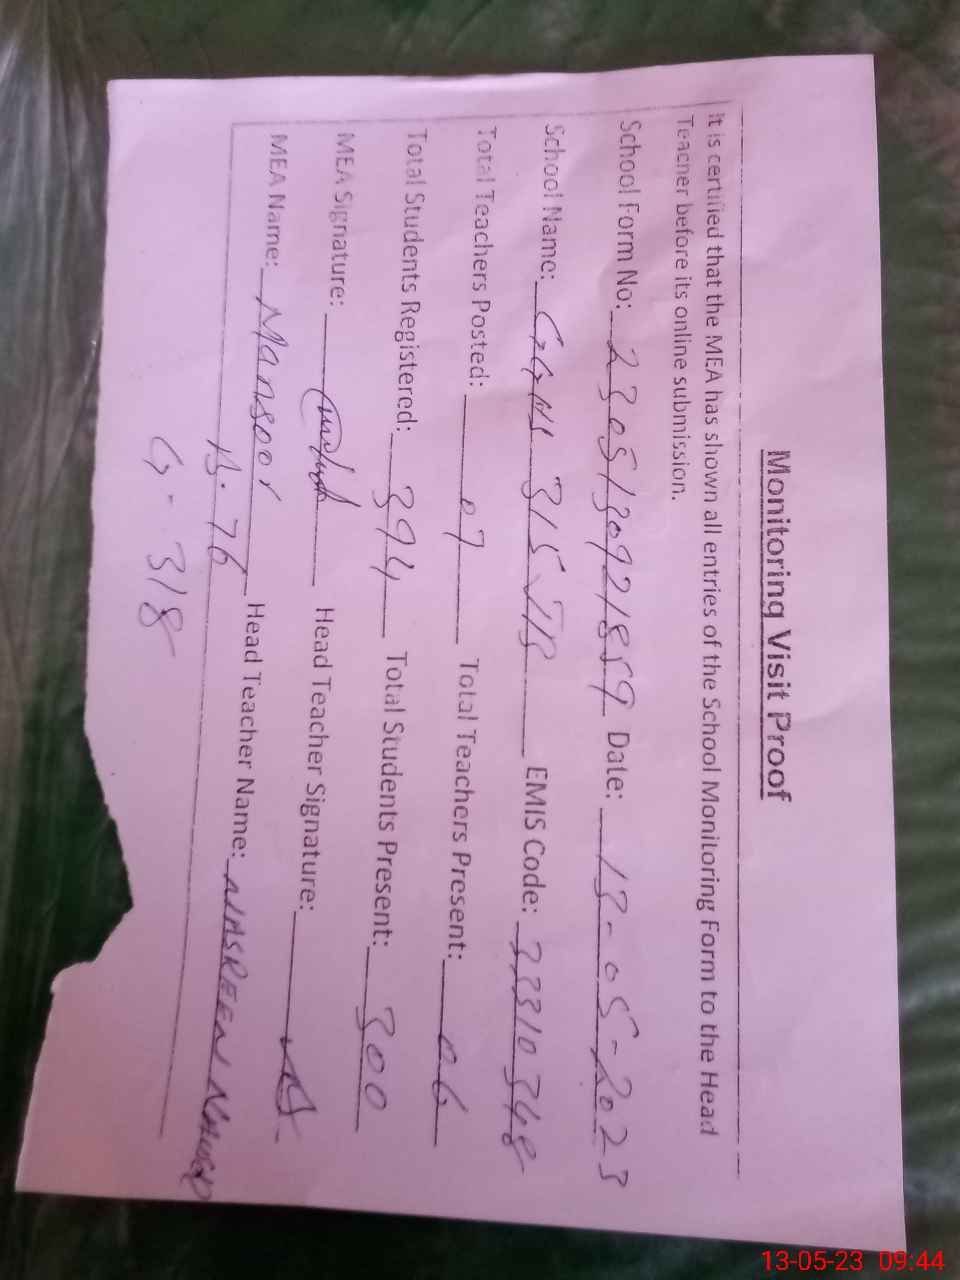 Monitoring Visit Proof
It is certified that the MEA has shown all entries of the School Monitoring Form to the Head
Teacher before its online submission.
School Form No: 2305130921859 Date: 13-05-2023
School Name: GGHS 315 JB EMIS Code: 33310348
Total Teachers Posted: 07 Total Teachers Present: 06
Total Students Registered: 394 Total Students Present: 300
MEA Signature: Head Teacher Signature:
MEA Name: Mansoor Head Teacher Name: NASREEN
B. 76
G - 318
13-05-23 09:44